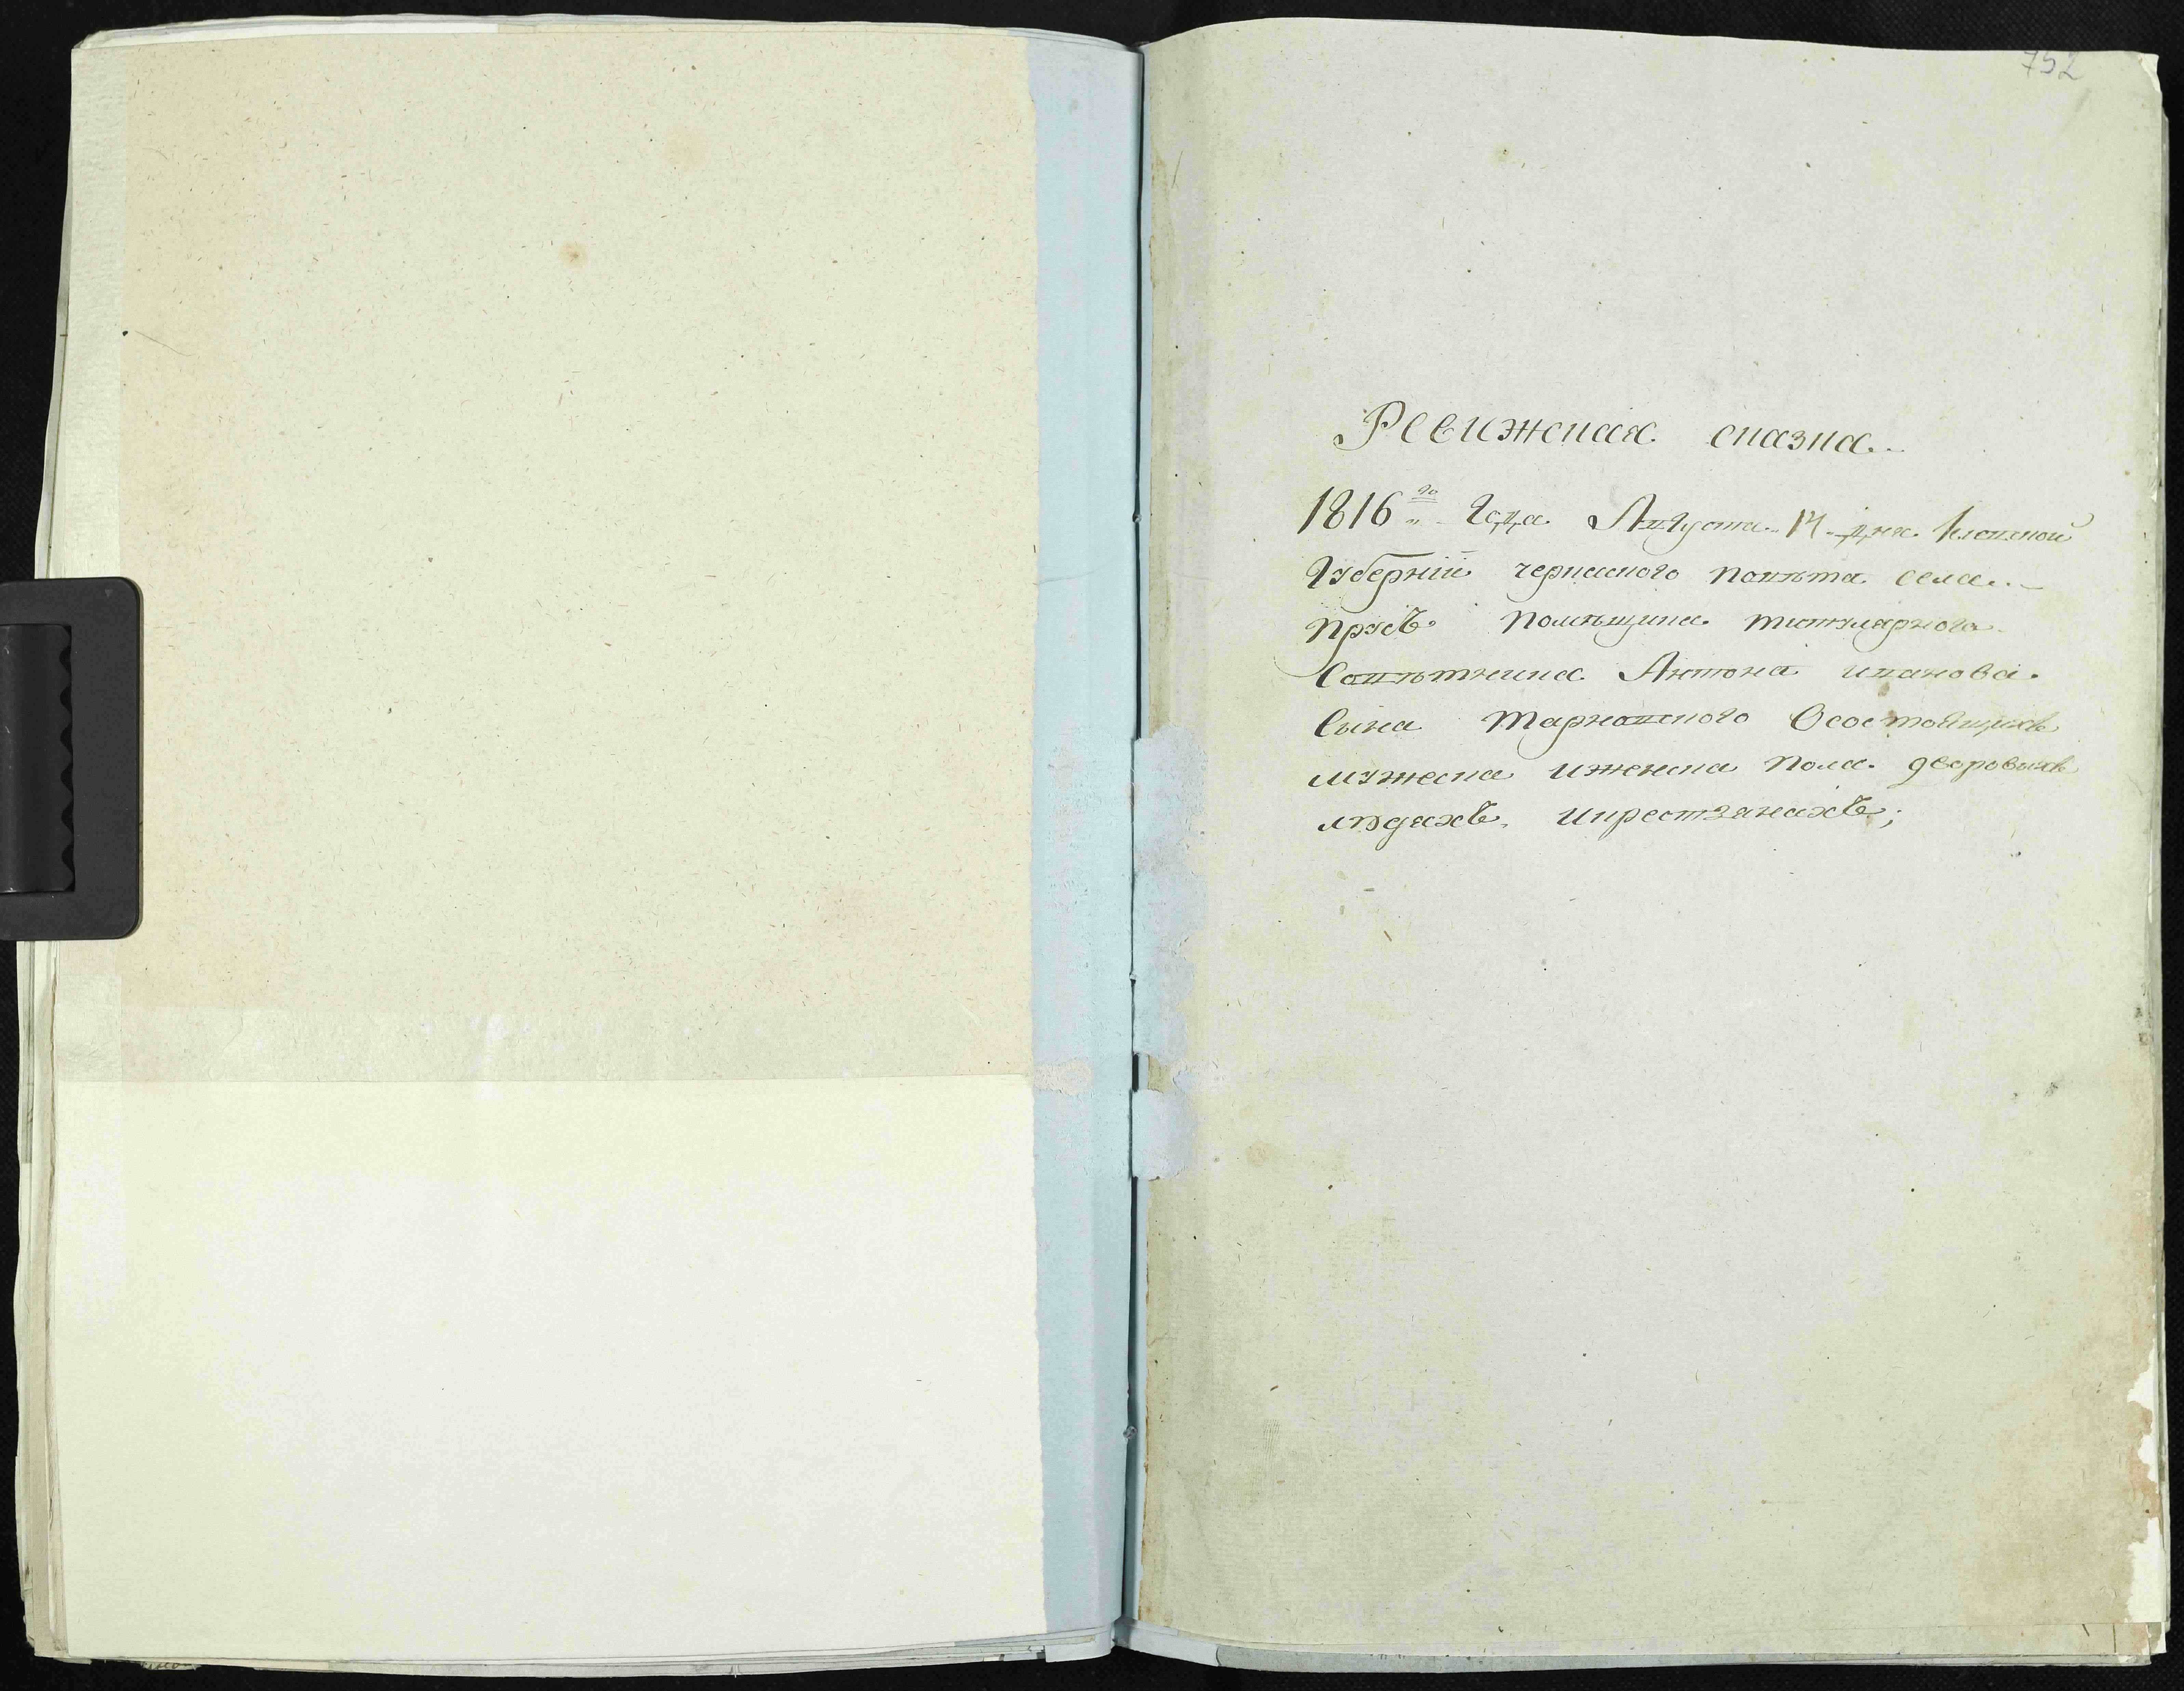 752
Ревижская сказка..
1816го Года Августа 14 дня Киевской
Губернии черкаского повѣта села..
Прусъ помѣщика титулярного
Совѣтника Антона иванова
Сына Тарновского Осостоящихъ
мужеска иженска пола дворовыхъ
людяхъ икрестьянахъ;